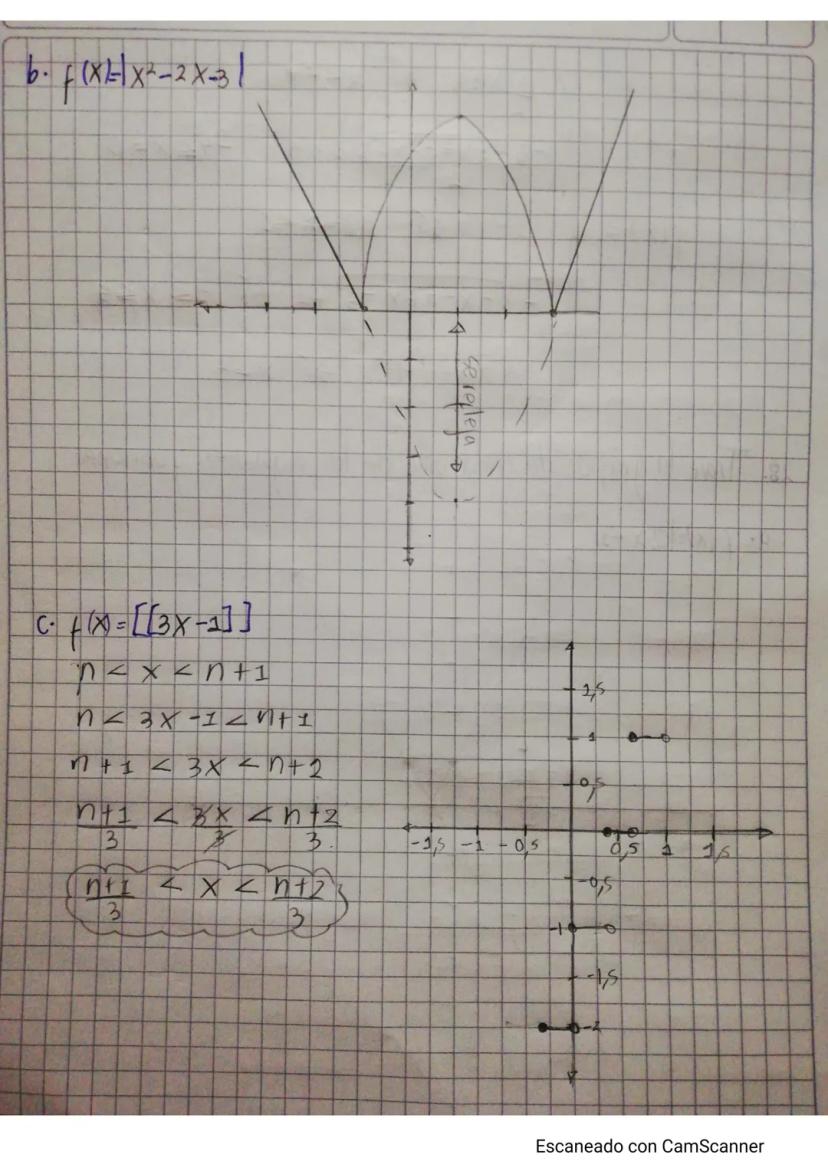 b. f(x)=|x²-2x-3|
se refleja
c. f(x)=[[3x-1]]
n < x < n+1
n < 3x-1 < n+1
n+1 < 3x < n+2
n+1/3 < 3x/3 < n+2/3.
n+1/3 < x < n+2/3
1,5
1
0,5
-1,5 -1 -0,5 0,5 1 1,5
-0,5
-1
-1,5
-2
Escaneado con CamScanner